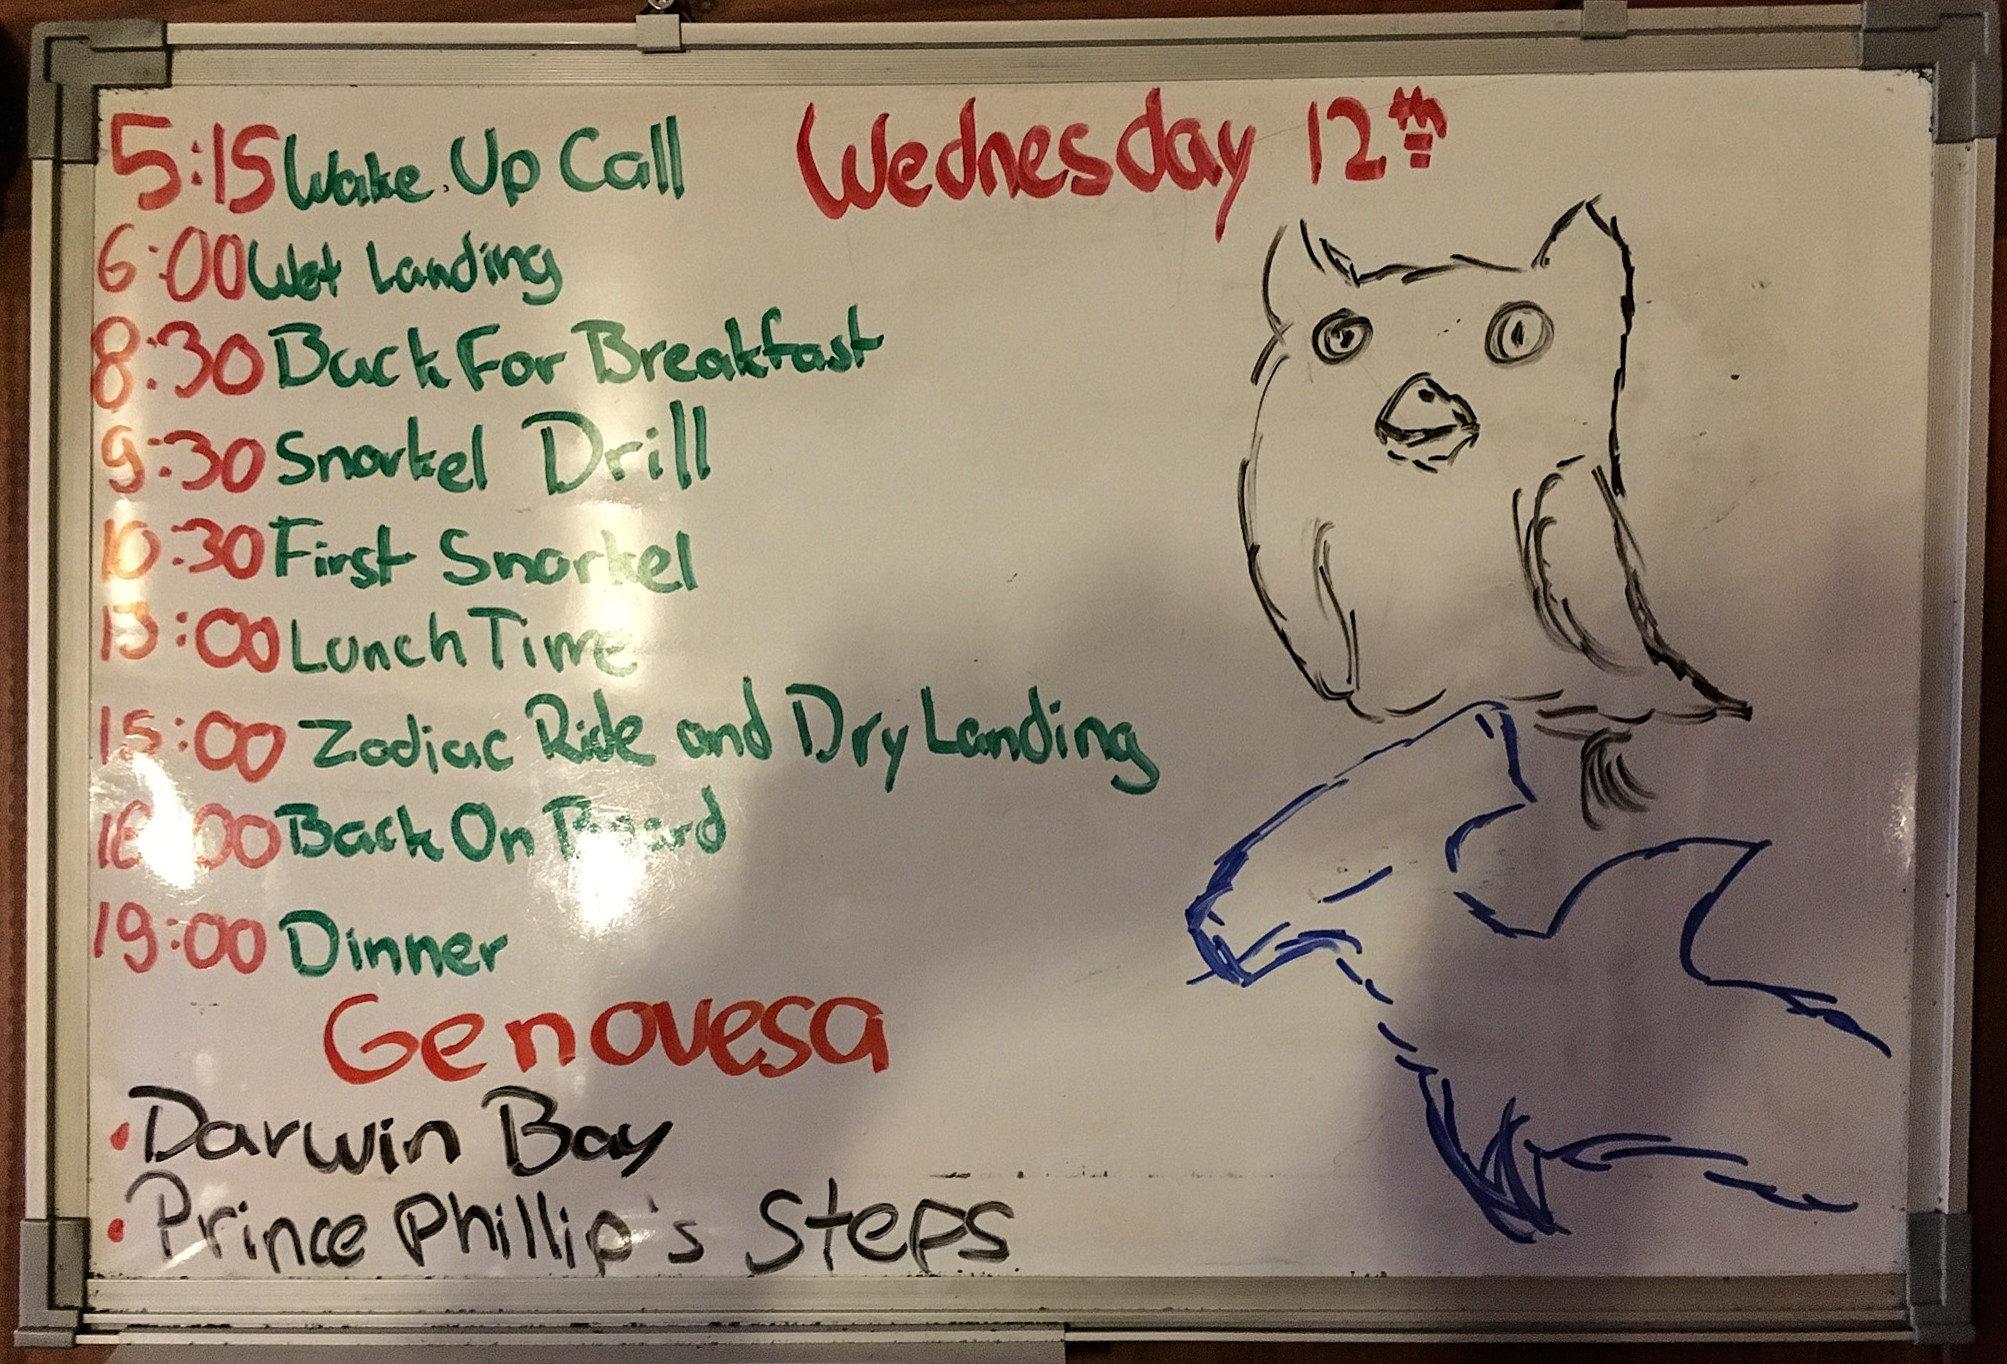 Wednesday 12th
5:15 Wake Up Call
6:00 Wet Landing
8:30 Back For Breakfast
9:30 Snorkel Drill
10:30 First Snorkel
13:00 Lunch Time
15:00 Zodiac Ride and Dry Landing
18:00 Back On Board
19:00 Dinner
Genovesa
• Darwin Bay
• Prince Phillip's Steps